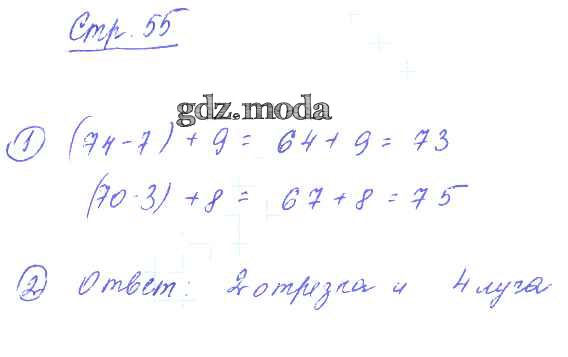 Стр. 55
gdz.moda
1 (74-7) + 9 = 64 + 9 = 73
(70-3) + 8 = 67 + 8 = 75
2 Ответ: 2 отрезка и 4 луча